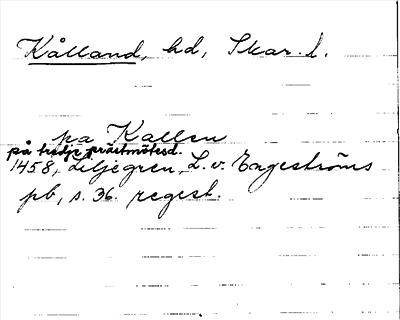 Kålland, hd, Skar. l.
pa Kallen
på tredje prästmötesd.
1458, Liljegren, L. v. Engeströms
pb, s. 36. regest.